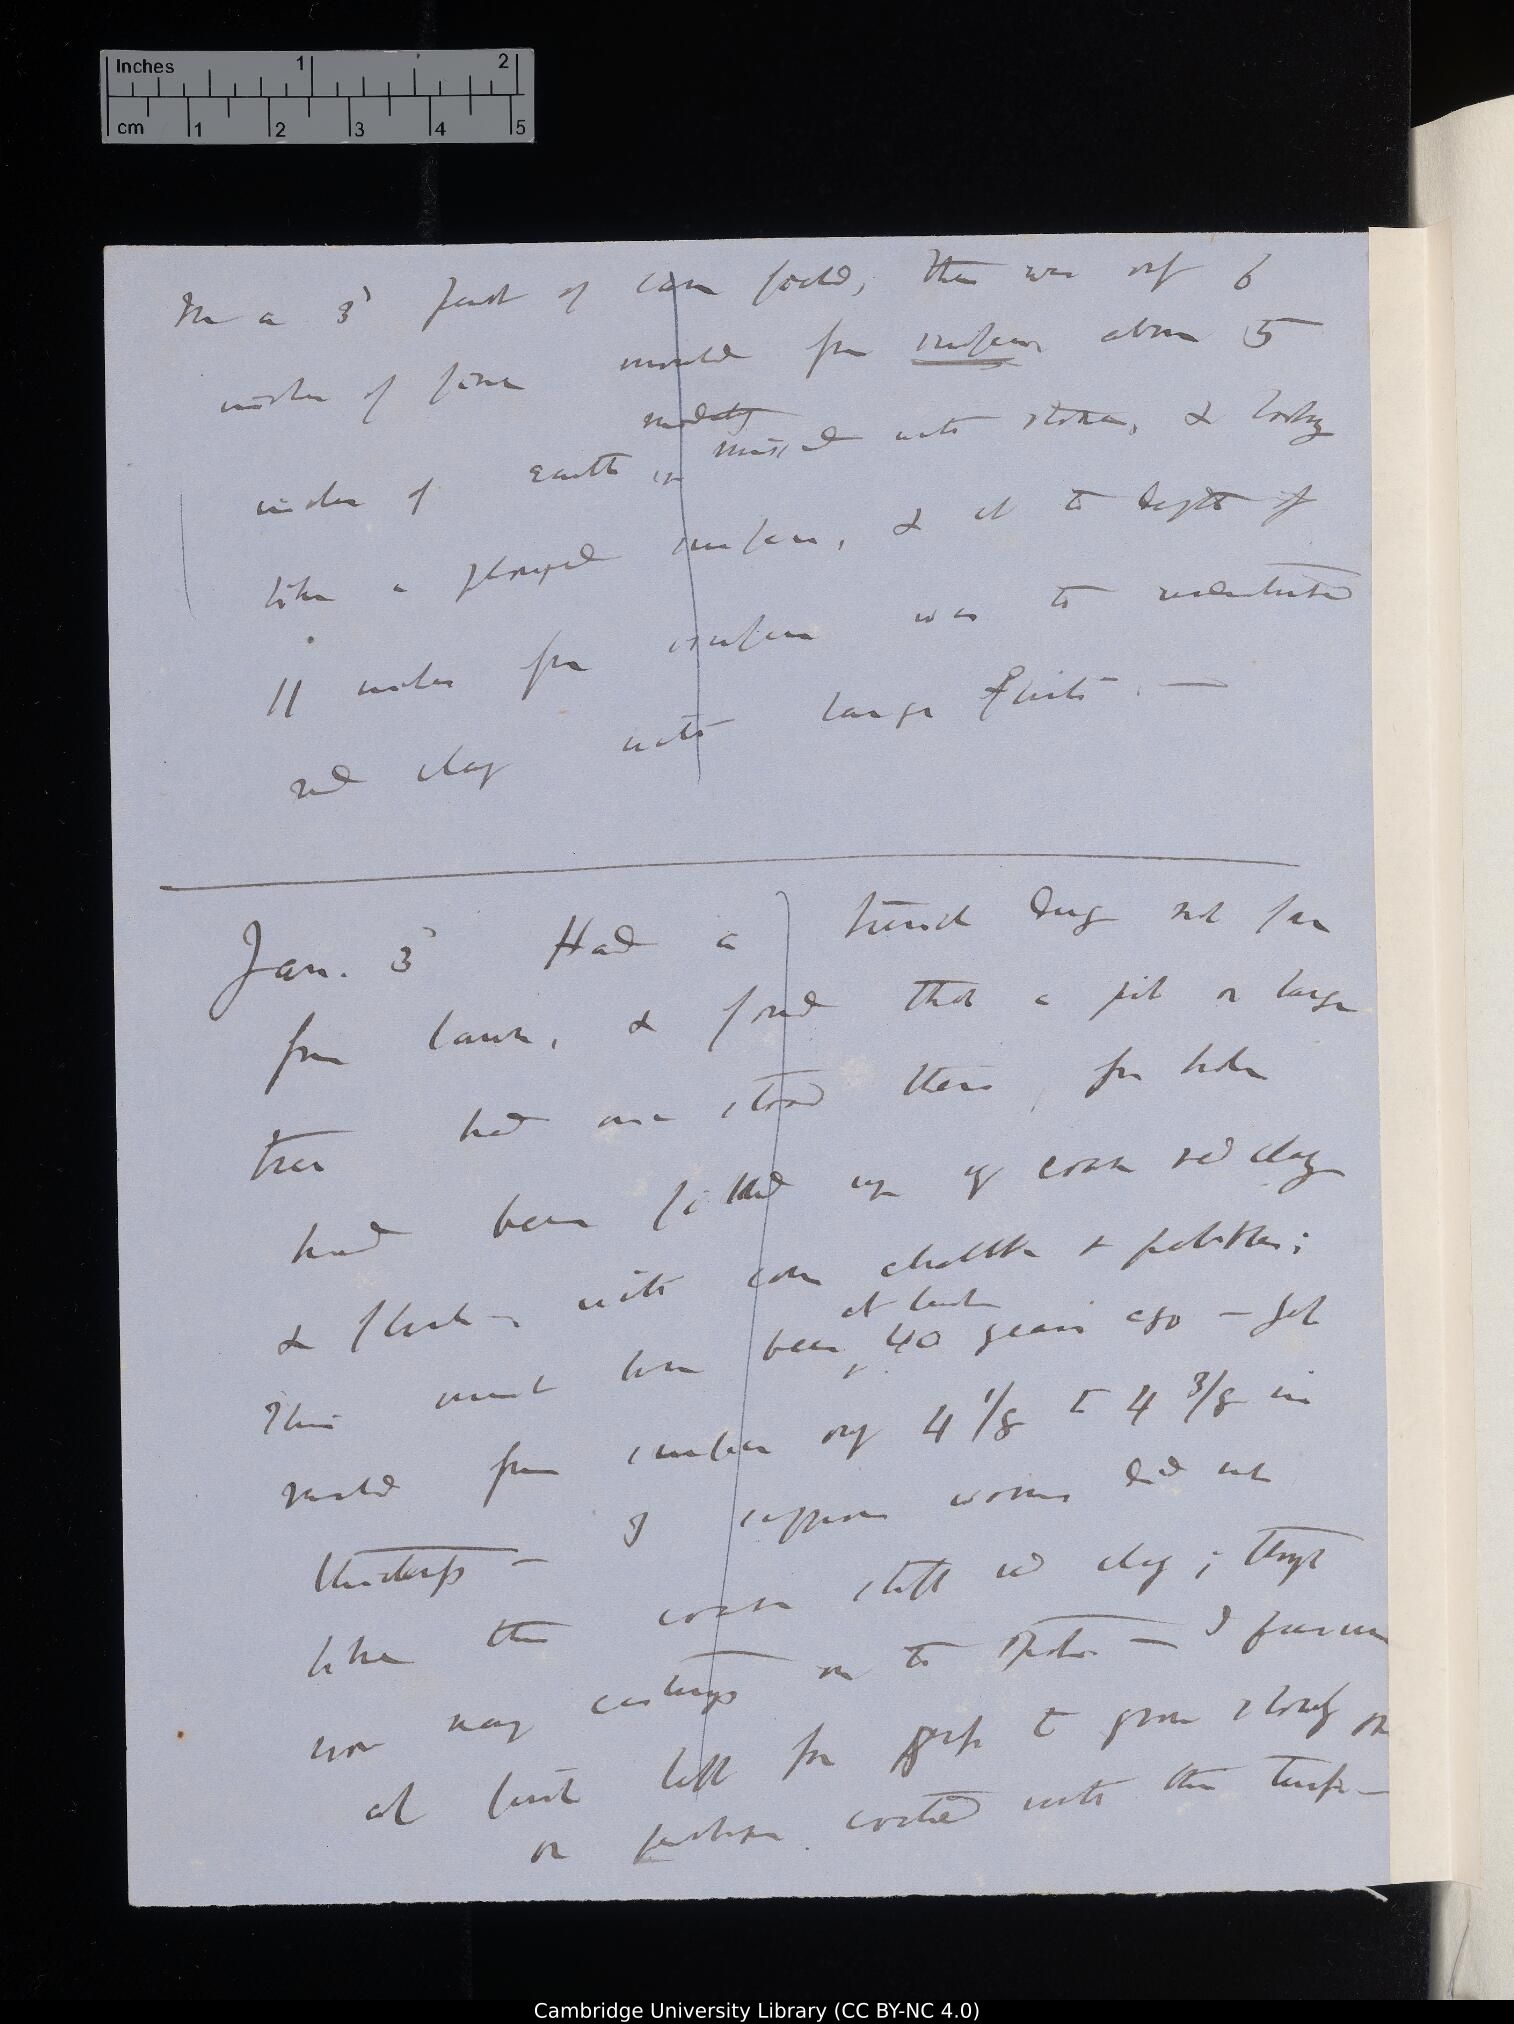 Inches 1 2
cm 1 2 3 4 5
In a 3d part of same field, there was only 6
inches of fine mould from surface above 5
inches of earth mixed with stones, & looking
like a ploughed surface, & at the depth of
11 inches from surface was the undisturbed
red clay with large flints. —
Jan. 3d Had a trench dug not far
from lawn, & found that a pit or large
tree had once stood there, for hole
had been filled up of coarse red clay
& flints, with some chalk & pebbles;
at least
This must have been 40 years ago — yet
mould from surface only 4 1/8 to 4 3/8 in
thickness — I suppose worms did not
like the coarse stiff red clay; though
now many castings on the spot. — I presume
at first left for grass to grow slowly on
or perhaps coated with thin turf —
Cambridge University Library (CC BY-NC 4.0)